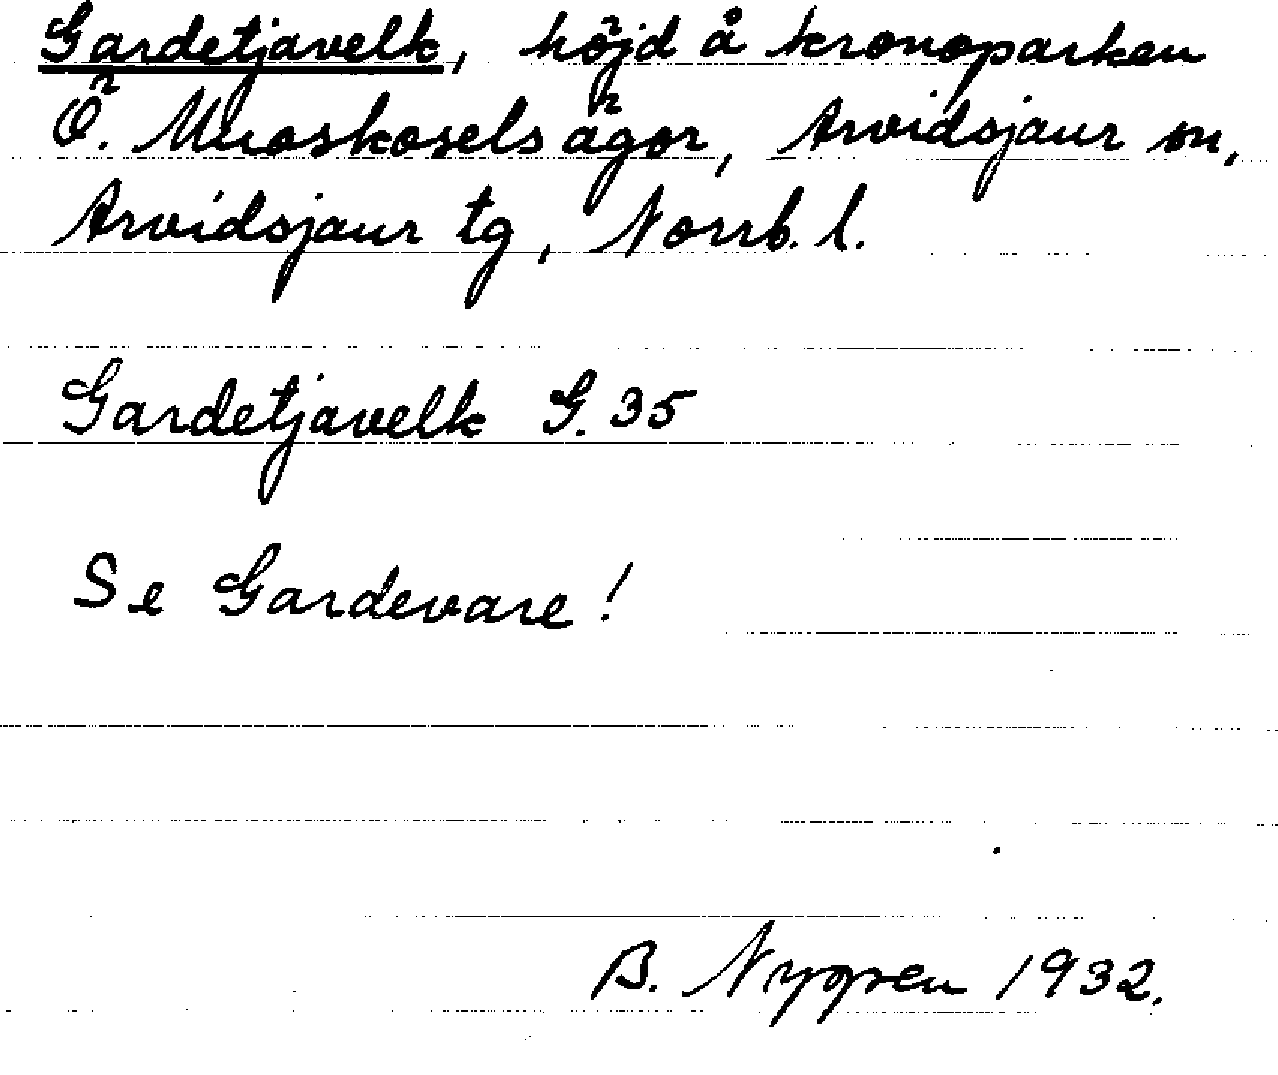 Gardetjavelk, höjd å kronoparken
Ö. Muoskosels ägor, Arvidsjaur sn,
Arvidsjaur tg, Norrb. l.
Gardetjavelk G. 35
Se Gardevare!
B. Nygren 1932.